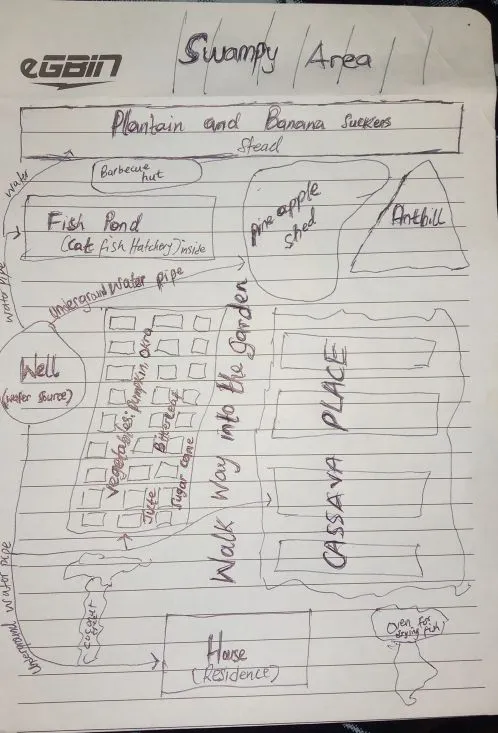 eGBIN
Swampy Area
Plantain and Banana Suckers
Stead
Barbecue
hut
Water
Fish Pond
(Cat fish Hatchery) inside
Pineapple
Shed
Anthill
Water Pipe
Underground Water Pipe
Well
(Water source)
Vegetables: Pumpkin. Okra
Bitterleaf
Jute
Sugar Cane
Walk Way into the Garden
CASSAVA PLACE
Underground Water Pipe
Coconut
tree
House
(Residence)
Oven for
drying fish